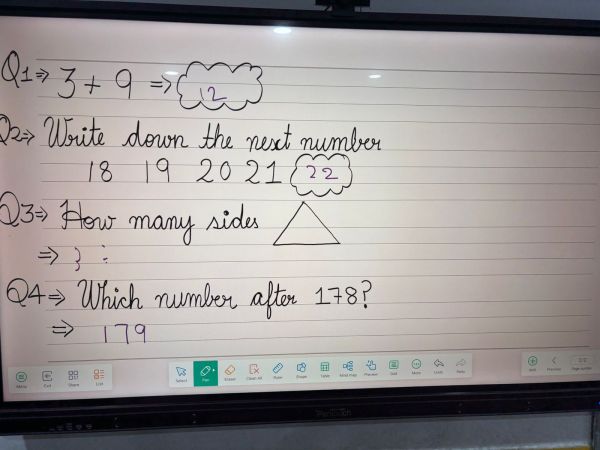 Q1⇒ 3 + 9 ⇒ 12
Q2⇒ Write down the next number
18 19 20 21 22
Q3⇒ How many sides
⇒ 3 :
Q4⇒ Which number after 178?
⇒ 179
Menu Exit Share List Select Pen Eraser Clean All Ruler Shape Table Mind map Preview Grid More Undo Redo Add Previous Page number